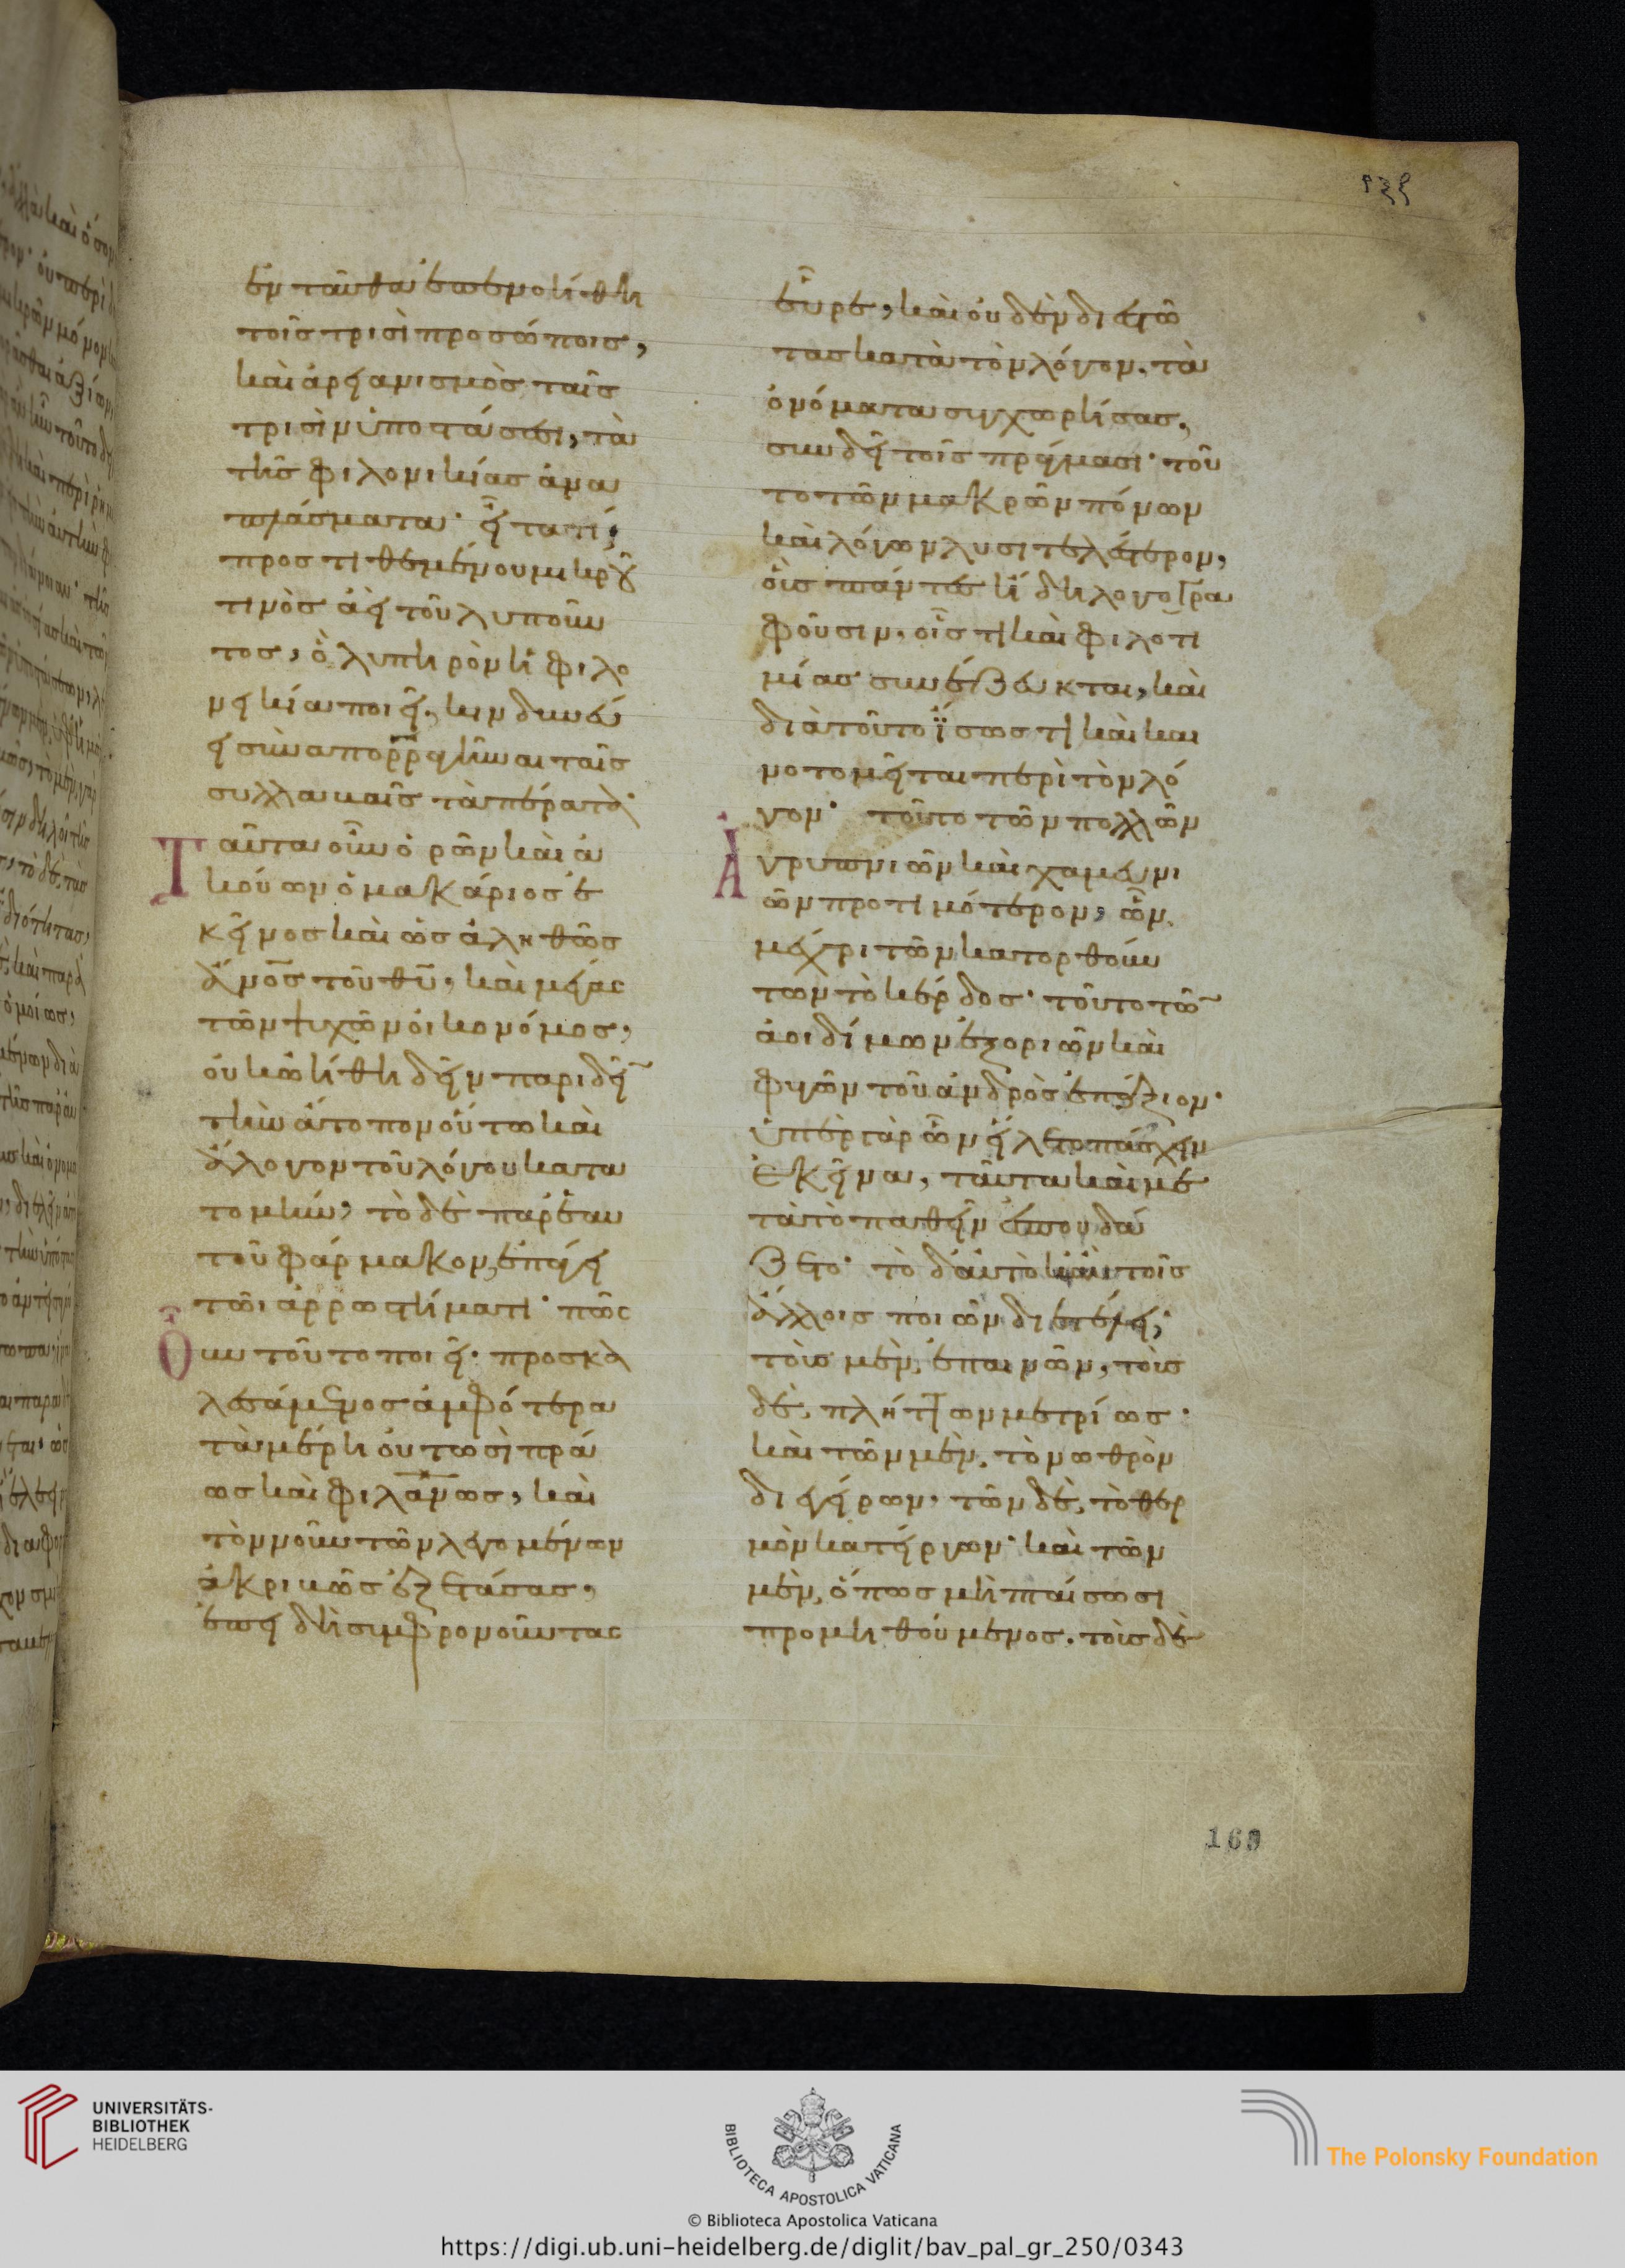 ἐνταῦθα ἐπενοήθη
τοῖς τρισὶ προσώποις,
καὶ ἀρειανισμὸς ταῖς
τρισὶν ὑποστάσεσι, τὰ
τῆς φιλονικίας ἀνα
πλάσματα· εἶτα τί;
προστιθεμένου μικροῦ
τινὸς ἀεὶ τοῦ λυποῦν
τος, ὃ λυπηρὸν ἡ φιλο
νεικία ποιεῖ, κινδυνεύ
ει συναπορραγῆναι ταῖς
συλλαβαῖς τὰ πέρατα·
Ταῦτα οὖν ὁρῶν καὶ ἀ
κούων ὁ μακάριος ἐ
κεῖνος καὶ ὡς ἀληθῶς
ἄνος τοῦ θυ, καὶ μέγας
τῶν ψυχῶν οἰκονόμος,
οὐκ ὠήθη δεῖν παριδεῖν
τὴν ἄτοπον οὕτω καὶ
ἄλογον τοῦ λόγου κατα
τομήν, τὸ δὲ παρ' ἑαυ
τοῦ φάρμακον, ἐπάγει
τῶι ἀρρωστήματι· πῶς
Οὖν τοῦτο ποιεῖ· προσκα
λεσάμενος ἀμφότερα
τὰ μέρη οὑτωσὶ πρά
ως καὶ φιλανως, καὶ
τὸν νοῦν τῶν λεγομένων
ἀκριβῶς ἐξετάσας,
ἐπειδὴ συμφρονοῦντας
εὗρε, καὶ οὐδὲν διεστῶ
τας κατὰ τὸν λόγον, τὰ
ὀνόματα συγχωρήσας,
συνδεῖ τοῖς πράγμασι· τοῦ
το τῶν μακρῶν πόνων
καὶ λόγων λυσιτελέστερον,
οἷς πάντες ἤδη λογογρα
φοῦσιν, οἷς τι καὶ φιλοτι
μίας συνέζευκται, καὶ
διὰ τοῦτο ἴσως τι καὶ και
νοτομεῖται περὶ τὸν λό
γον· τοῦτο τῶν πολλῶν
Ἀγρυπνιῶν καὶ χαμευνι
ῶν προτιμότερον, ὧν
μέχρι τῶν κατορθούν
των τὸ κέρδος· τοῦτο τῶν
ἀοιδίμων ἐξοριῶν καὶ
φυγῶν τοῦ ἀνδρὸς ἐπάξιον·
ὑπὲρ γὰρ ὧν εἵλετο πάσχειν
ἐκεῖνα, ταῦτα καὶ με
τὰ τὸ παθεῖν ἐσπουδά
ζετο· τὸ δ' αὐτὸ καὶ τοῖς
ἄλλοις ποιῶν διετέλει,
τοὺς μὲν, ἐπαινῶν, τοὺς
δὲ, πλήττων μετρίως·
καὶ τῶν μὲν, τὸ νωθρὸν
διεγείρων, τῶν δὲ, τὸ θερ
μὸν κατείργων· καὶ τῶν
μὲν, ὅπως μὴ πταίσωσι
προμηθούμενος, τοὺς δὲ
169
UNIVERSITÄTS-
BIBLIOTHEK
HEIDELBERG
BIBLIOTECA APOSTOLICA VATICANA
The Polonsky Foundation
© Biblioteca Apostolica Vaticana
https://digi.ub.uni-heidelberg.de/diglit/bav_pal_gr_250/0343